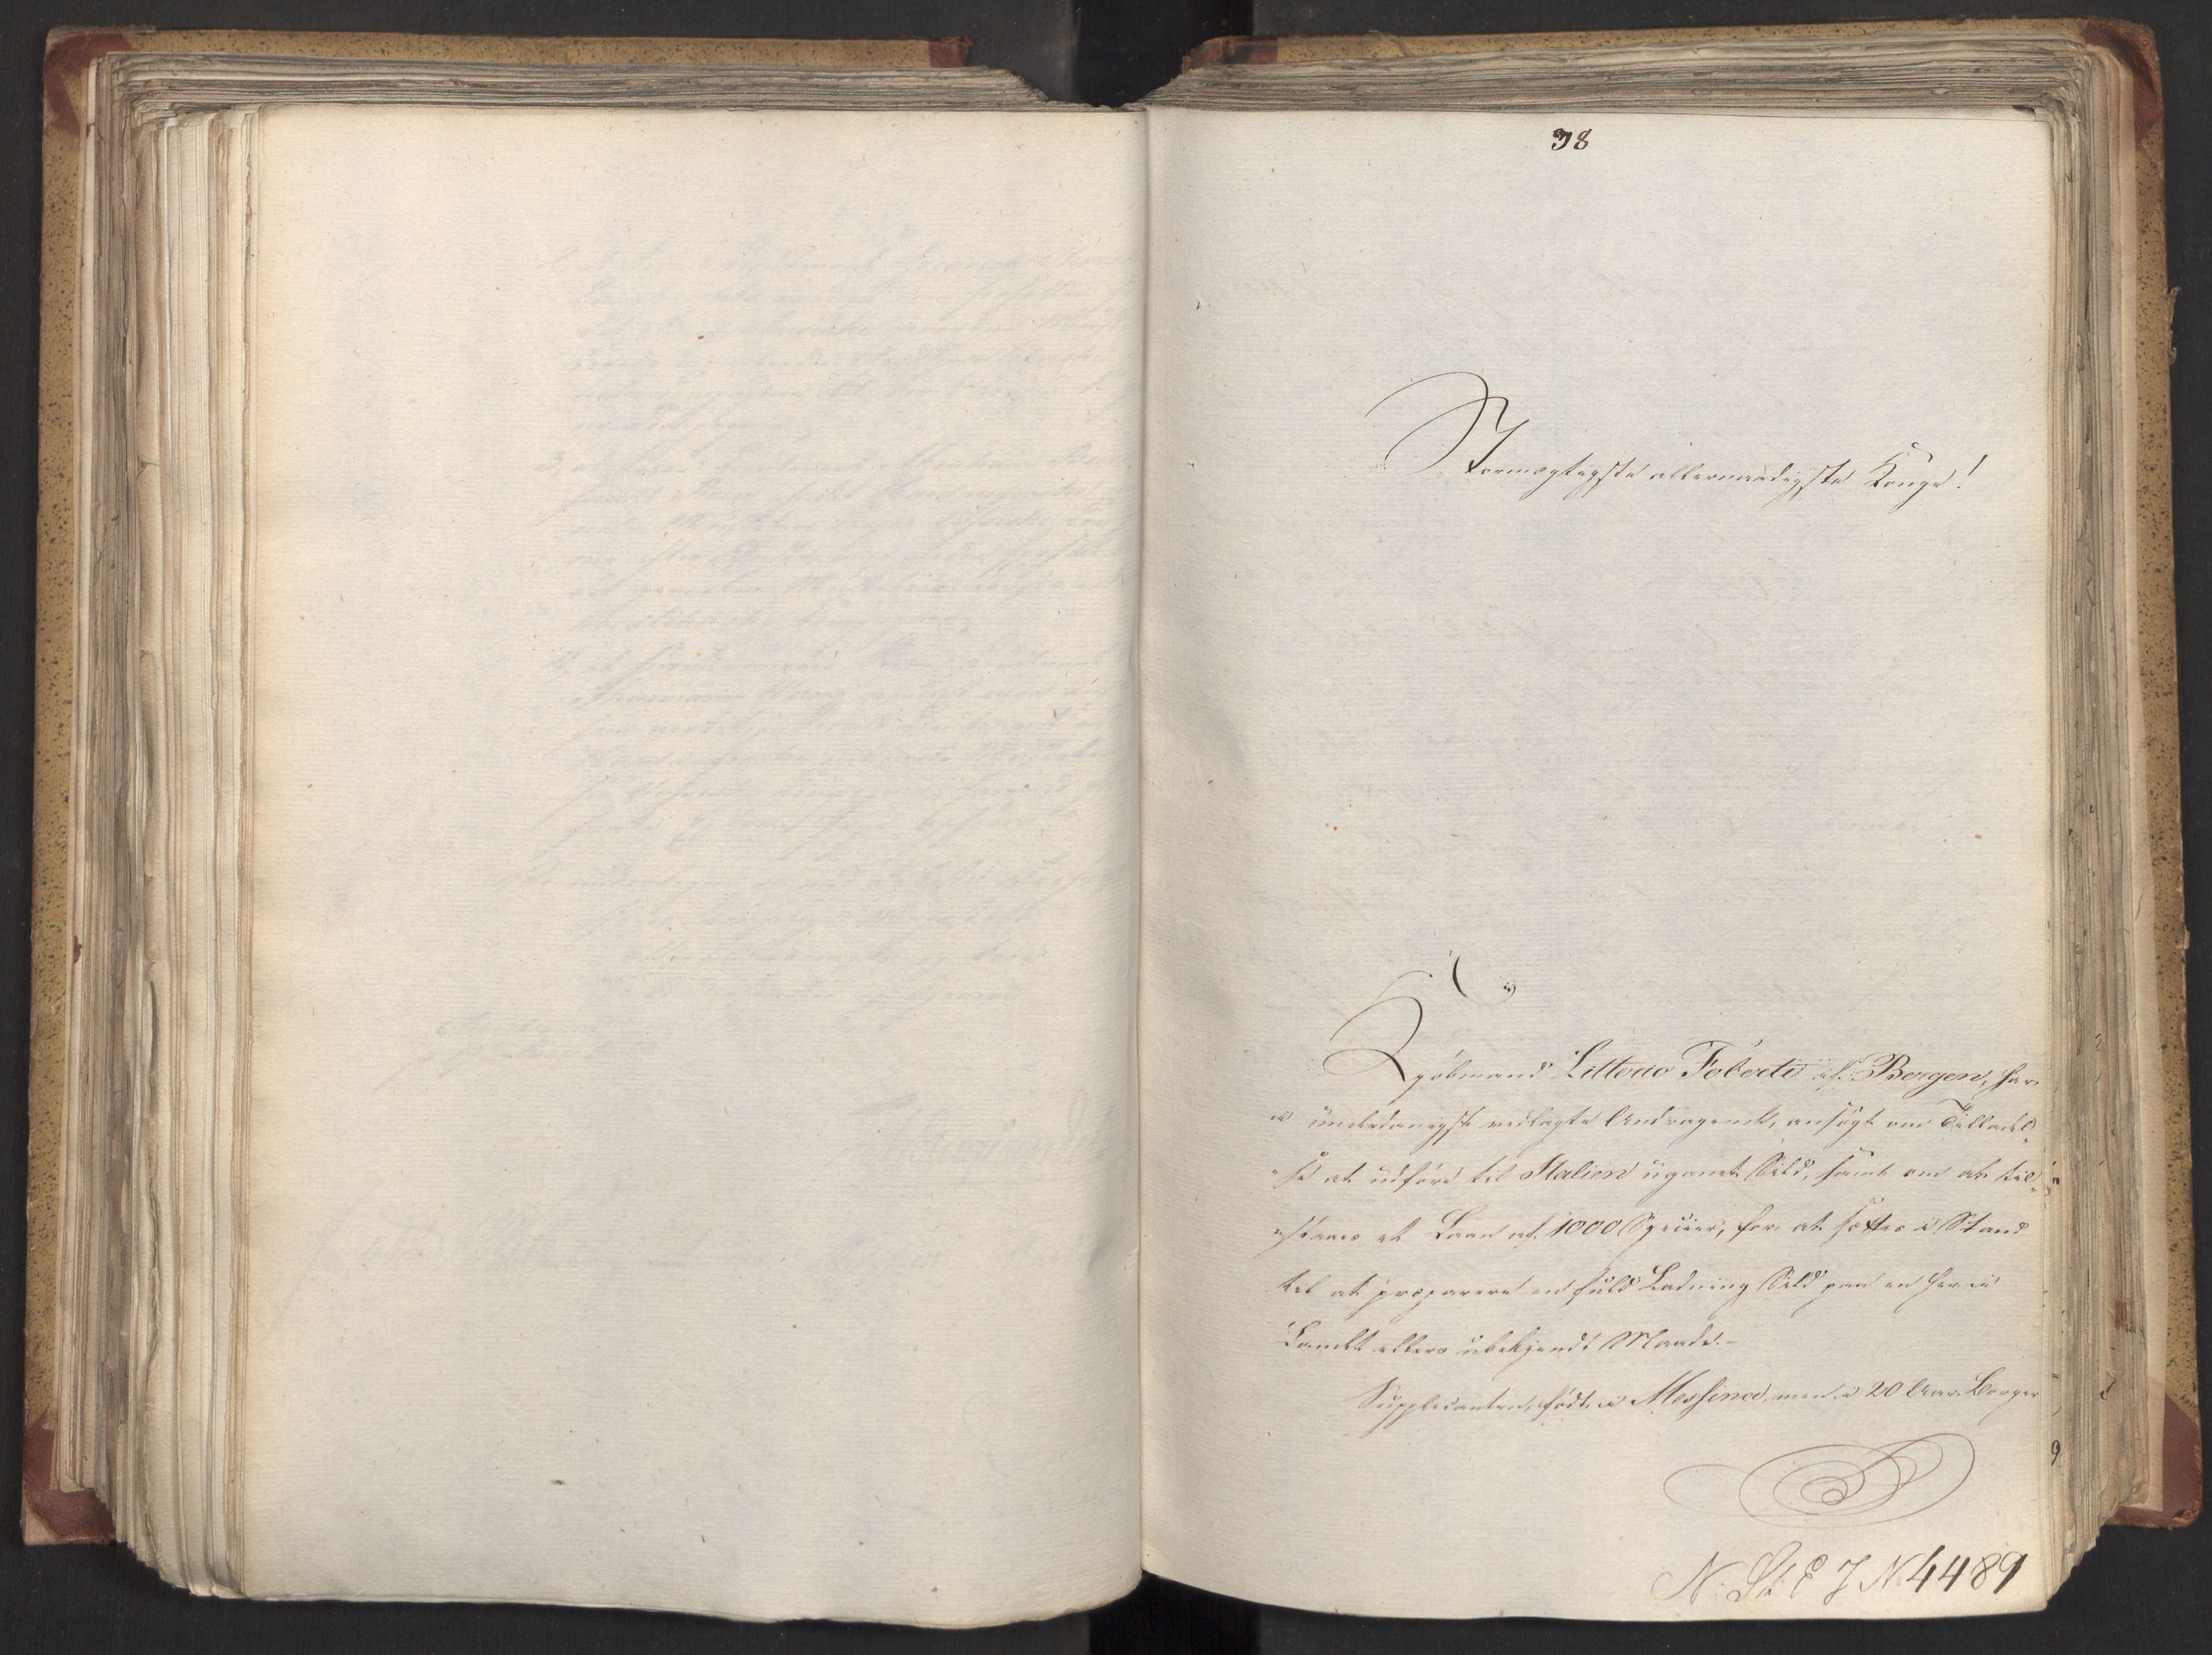 38
Stormægtigste allernaadigste Konge!
Kjøbmand Littorio Foberti af Bergen, har
i underdanigst vedlagte Andragende, ansøgt om Tilladel„
„se at udføre til Italien uganet Sild, samt om at til„
„staaes et Laan af 1000 Specier, for at sættes i Stand
til at præparere en fuld Ladning Sild paa en her i
Landet ellers ubekjendt Maade.-
Supplicanten, født i Messina, men i 20 Aar Borger
N. St. E. J. N 4489